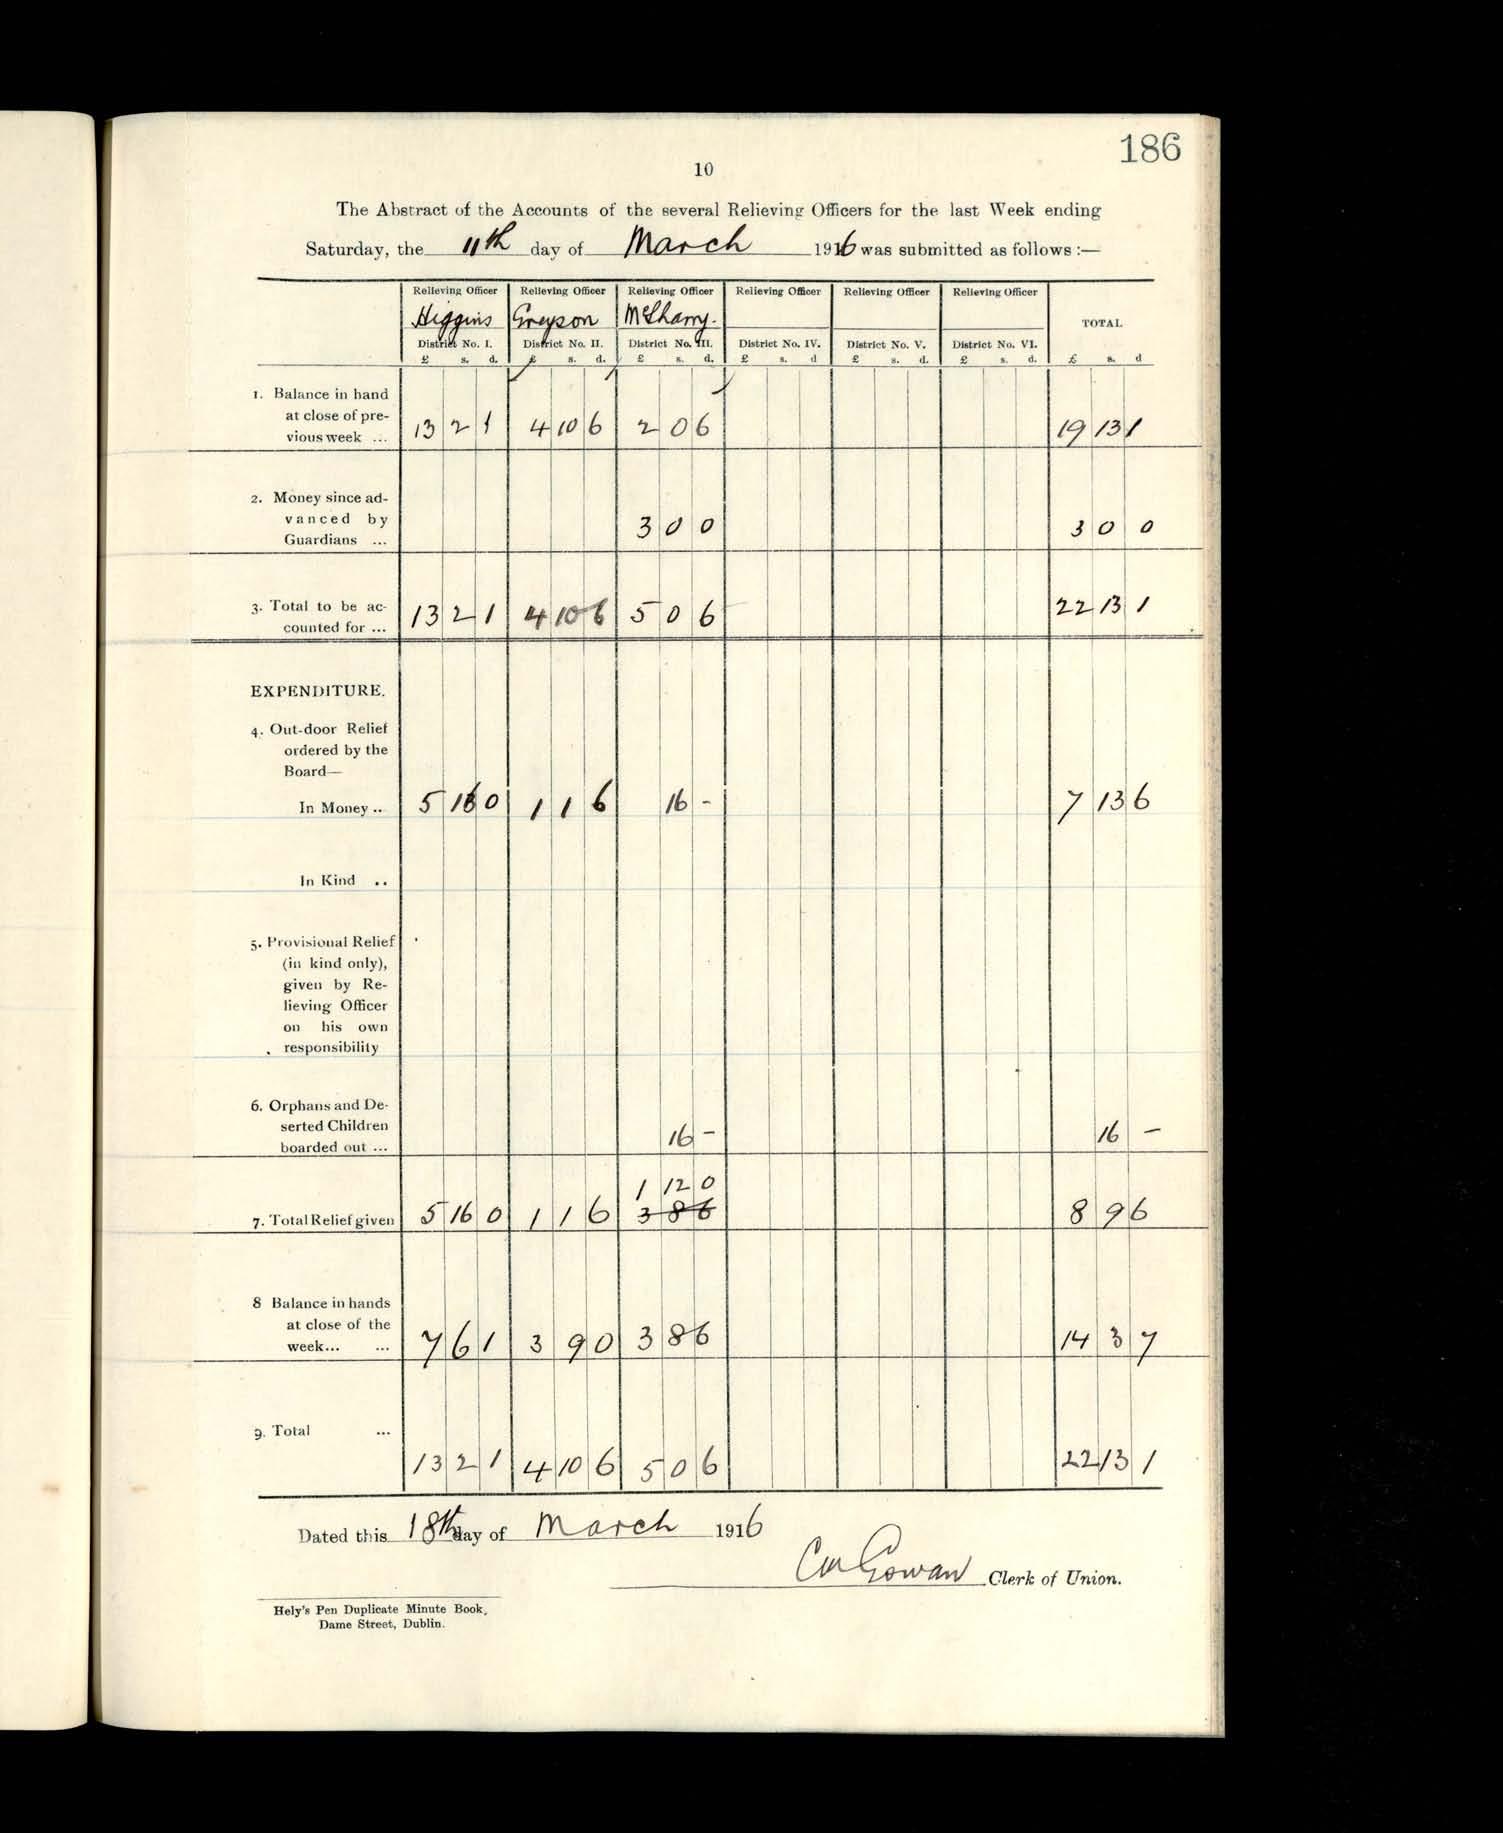 186
10
The Abstract of the Accounts of the several Relieving Officers for the last Week ending
Saturday, the 11th day of March 1916 was submitted as follows :—
Relieving Officer Relieving Officer Relieving Officer Relieving Officer Relieving Officer Relieving Officer
Higgins Greyson McSharry. TOTAL
District No. I. District No. II. District No. III. District No. IV. District No. V. District No. VI.
£ s. d. £ s. d. £ s. d. £ s. d £ s. d. £ s. d. £ s. d
1. Balance in hand
at close of pre-
vious week ... 13 2 1 4 10 6 2 0 6 19 13 1
2. Money since ad-
vanced by
Guardians ... 3 0 0 3 0 0
3. Total to be ac-
counted for ... 13 2 1 4 10 6 5 0 6 22 13 1
EXPENDITURE.
4. Out-door Relief
ordered by the
Board—
In Money .. 5 16 0 1 1 6 16 - 7 13 6
In Kind ..
5. Provisional Relief
(in kind only),
given by Re-
lieving Officer
on his own
responsibility
6. Orphans and De-
serted Children
boarded out ... 16 - 16 -
1 12 0
7. Total Relief given 5 16 0 1 1 6 3 8 6 8 9 6
8 Balance in hands
at close of the
week... ... 7 6 1 3 9 0 3 8 6 14 3 7
9. Total ...
13 2 1 4 10 6 5 0 6 22 13 1
Dated this 18th day of March 1916
Gowan Clerk of Union.
Hely's Pen Duplicate Minute Book,
Dame Street, Dublin.